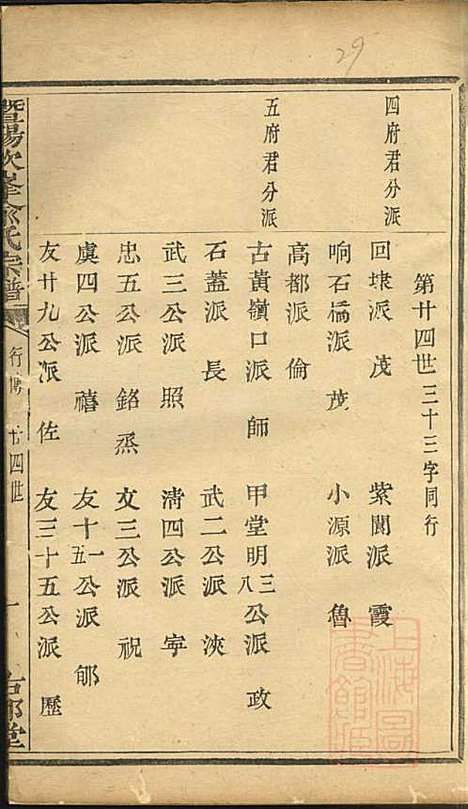 29
第廿四世三十三字同行
四府君分派
回埭派 茂 紫閬派 霞
响石橋派 茂 小源派 魯
高都派 倫
五府君分派
古黃嶺口派 師 甲堂明三八公派 政
石蓋派 長 武二公派 浹
武三公派 照 清四公派 寧
忠五公派 銘烝 文三公派 祝
虞四公派 禧 友十一五公派 郇
友廿九公派 佐 友三十五公派 歷
暨陽次峯俞氏宗譜
行傳 廿四世
一